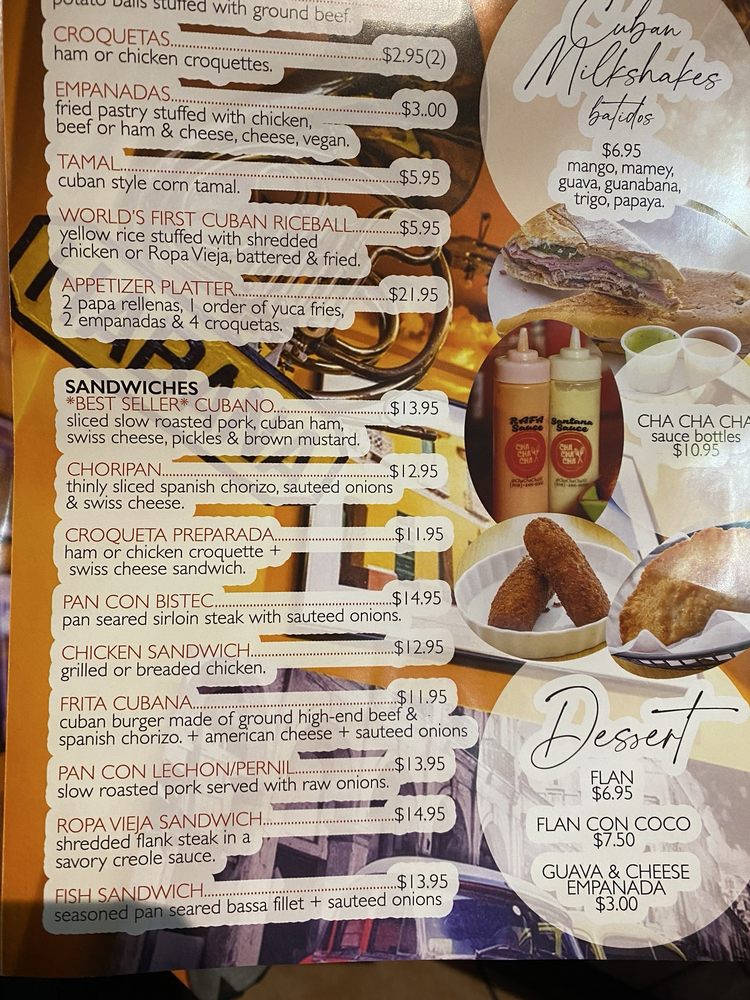 potato balls stuffed with ground beef.
CROQUETAS....................$2.95(2)
ham or chicken croquettes.
EMPANADAS....................$3.00
fried pastry stuffed with chicken,
beef or ham & cheese, cheese, vegan.
TAMAL....................$5.95
cuban style corn tamal.
WORLD'S FIRST CUBAN RICEBALL....................$5.95
yellow rice stuffed with shredded
chicken or Ropa Vieja, battered & fried.
APPETIZER PLATTER....................$21.95
2 papa rellenas, 1 order of yuca fries,
2 empanadas & 4 croquetas.
SANDWICHES
*BEST SELLER* CUBANO....................$13.95
sliced slow roasted pork, cuban ham,
swiss cheese, pickles & brown mustard.
CHORIPAN....................$12.95
thinly sliced spanish chorizo, sauteed onions
& swiss cheese.
CROQUETA PREPARADA....................$11.95
ham or chicken croquette +
swiss cheese sandwich.
PAN CON BISTEC....................$14.95
pan seared sirloin steak with sauteed onions.
CHICKEN SANDWICH....................$12.95
grilled or breaded chicken.
FRITA CUBANA....................$11.95
cuban burger made of ground high-end beef &
spanish chorizo. + american cheese + sauteed onions
PAN CON LECHON/PERNIL....................$13.95
slow roasted pork served with raw onions.
ROPA VIEJA SANDWICH....................$14.95
shredded flank steak in a
savory creole sauce.
FISH SANDWICH....................$13.95
seasoned pan seared bassa fillet + sauteed onions
Cuban
Milkshakes
batidos
$6.95
mango, mamey,
guava, guanabana,
trigo, papaya.
RAFA
Sauce
CHA
CHA
CHA
Santana
Sauce
CHA
CHA
CHA
CHA CHA CHA
sauce bottles
$10.95
Dessert
FLAN
$6.95
FLAN CON COCO
$7.50
GUAVA & CHEESE
EMPANADA
$3.00